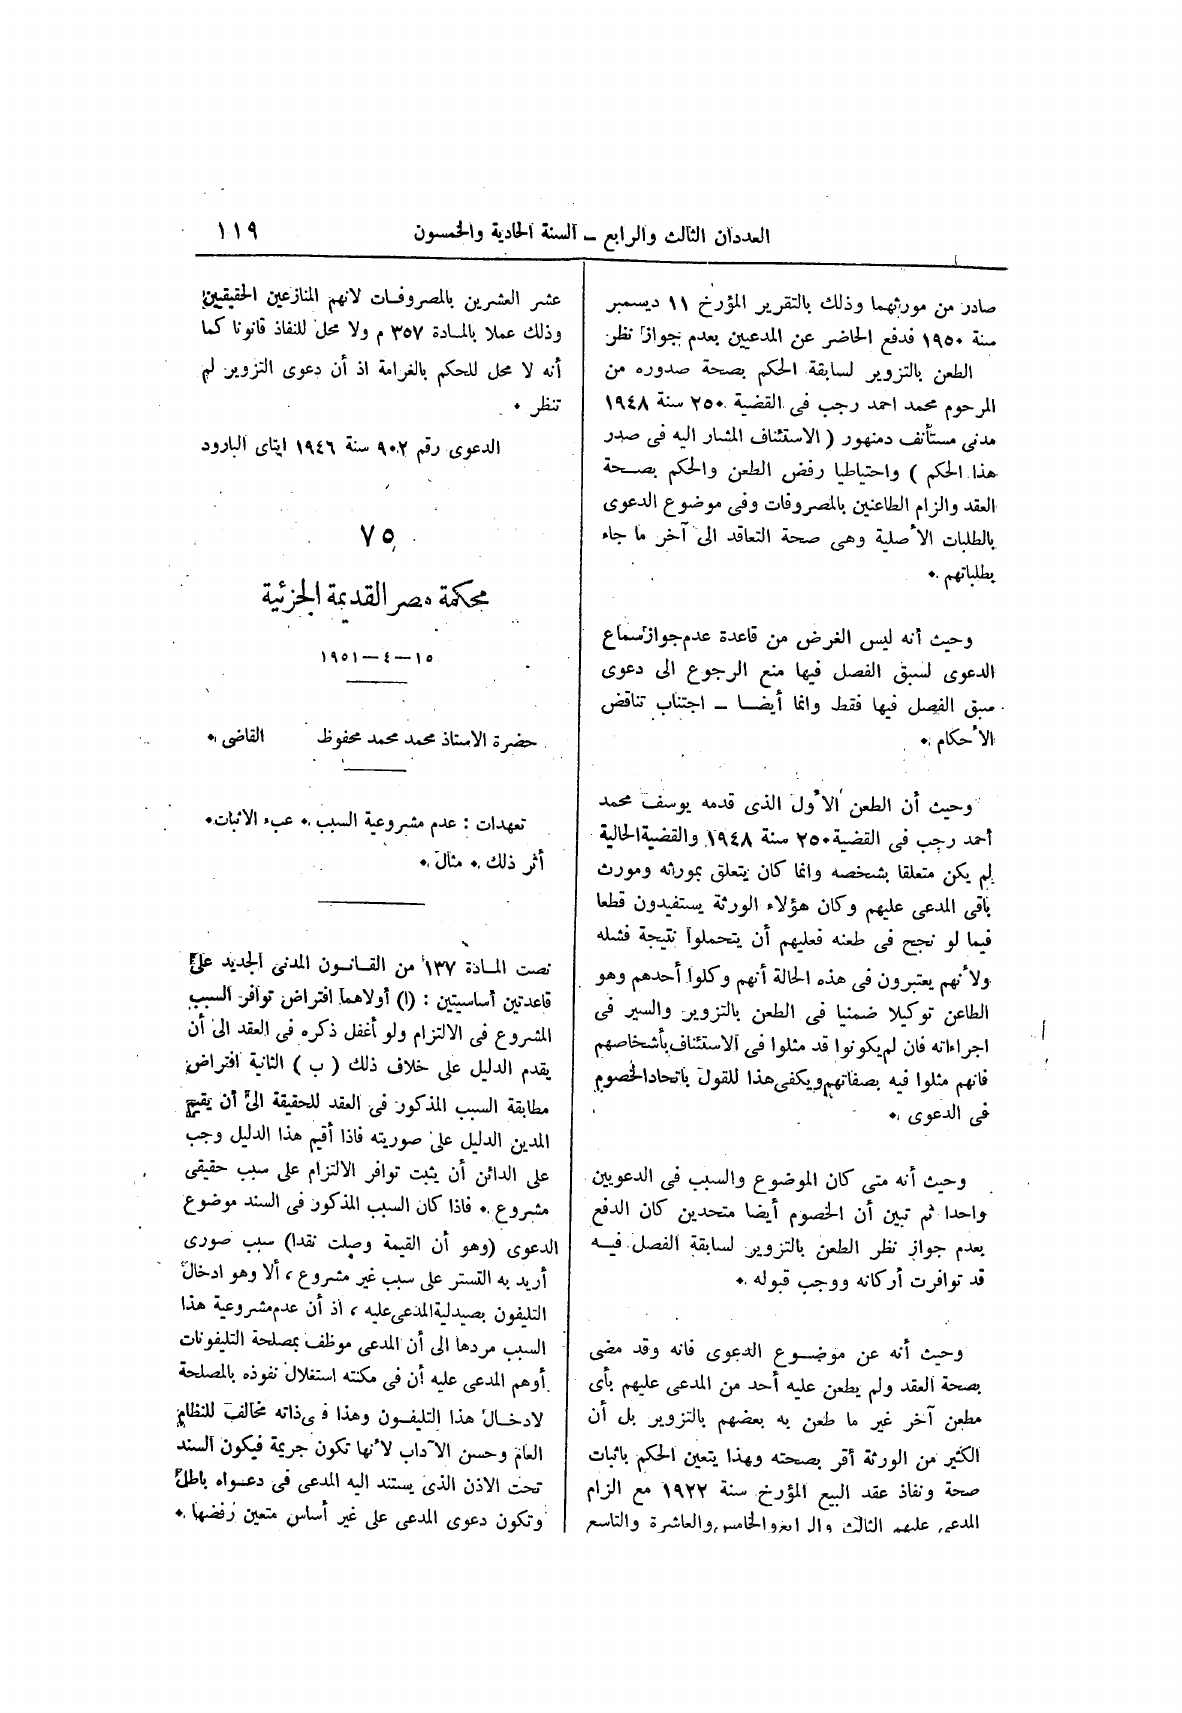 العددان الثالث والرابع – السنة الحادية والخمسون
١١٩
صادر من مورثهما وذلك بالتقرير المؤرخ ١١ ديسمبر
سنة ١٩٥٠ فدفع الحاضر عن المدعيين بعدم جواز نظر
الطعن بالتزوير لسابقة الحكم بصحة صدوره من
المرحوم محمد احمد رجب فى القضية ٢٥٠ سنة ١٩٤٨
مدنى مستأنف دمنهور ( الاستئناف المشار اليه فى صدر
هذا الحكم ) واحتياطيا رفض الطعن والحكم بصحة
العقد والزام الطاعنين بالمصروفات وفى موضوع الدعوى
بالطلبات الأصلية وهى صحة التعاقد الى آخر ما جاء
بطلباتهم .
وحيث أنه ليس الغرض من قاعدة عدم جواز سماع
الدعوى لسبق الفصل فيها منع الرجوع الى دعوى
سبق الفصل فيها فقط وانما أيضا – اجتناب تناقض
الأحكام .
وحيث أن الطعن الأول الذى قدمه يوسف محمد
أحمد رجب فى القضية ٢٥٠ سنة ١٩٤٨ والقضية الحالية
لم يكن متعلقا بشخصه وانما كان يتعلق بمورثه ومورث
باقى المدعى عليهم وكان هؤلاء الورثة يستفيدون قطعا
فيما لو نجح فى طعنه فعليهم أن يتحملوا نتيجة فشله
ولأنهم يعتبرون فى هذه الحالة أنهم وكلوا أحدهم وهو
الطاعن توكيلا ضمنيا فى الطعن بالتزوير والسير فى
اجراءاته فان لم يكونوا قد مثلوا فى الاستئناف بأشخاصهم
فانهم مثلوا فيه بصفاتهم ويكفى هذا للقول باتحاد الخصوم
فى الدعوى .
وحيث أنه متى كان الموضوع والسبب فى الدعويين
واحدا ثم تبين أن الخصوم أيضا متحدين كان الدفع
بعدم جواز نظر الطعن بالتزوير لسابقة الفصل فيه
قد توافرت أركانه ووجب قبوله .
وحيث أنه عن موضوع الدعوى فانه وقد مضى
بصحة العقد ولم يطعن عليه أحد من المدعى عليهم بأى
مطعن آخر غير ما طعن به بعضهم بالتزوير بل أن
الكثير من الورثة أقر بصحته وبهذا يتعين الحكم باثبات
صحة ونفاذ عقد البيع المؤرخ سنة ١٩٢٢ مع الزام
المدعى عليهم الثالث والرابع والخامس والعاشرة والتاسع
عشر العشرين بالمصروفات لانهم المنازعين الحقيقيين
وذلك عملا بالمادة ٣٥٧ م ولا محل للنفاذ قانونا كما
أنه لا محل للحكم بالغرامة اذ أن دعوى التزوير لم
تنظر .
الدعوى رقم ٩٠٢ سنة ١٩٤٦ ايتاى البارود
٧٥
محكمة مصر القديمة الجزئية
١٥–٤–١٩٥١
حضرة الاستاذ محمد محمد محفوظ القاضى .
تعهدات : عدم مشروعية السبب . عبء الاثبات .
أثر ذلك . مثال .
نصت المادة ١٣٧ من القانون المدنى الجديد على
قاعدتين أساسيتين : (ا) أولاهما افتراض توافر السبب
المشروع فى الالتزام ولو أغفل ذكره فى العقد الى أن
يقدم الدليل على خلاف ذلك ( ب ) الثانية افتراض
مطابقة السبب المذكور فى العقد للحقيقة الى أن يقيم
المدين الدليل على صوريته فاذا أقيم هذا الدليل وجب
على الدائن أن يثبت توافر الالتزام على سبب حقيقى
مشروع . فاذا كان السبب المذكور فى السند موضوع
الدعوى (وهو أن القيمة وصلت نقدا) سبب صورى
أريد به التستر على سبب غير مشروع ، ألا وهو ادخال
التليفون بصيدلية المدعى عليه ، اذ أن عدم مشروعية هذا
السبب مردها الى أن المدعى موظف بمصلحة التليفونات
أوهم المدعى عليه أن فى مكنته استغلال نفوذه بالمصلحة
لادخال هذا التليفون وهذا فى ذاته مخالف للنظام
العام وحسن الآداب لأنها تكون جريمة فيكون السند
تحت الاذن الذى يستند اليه المدعى فى دعواه باطلا
وتكون دعوى المدعى على غير أساس متعين رفضها .